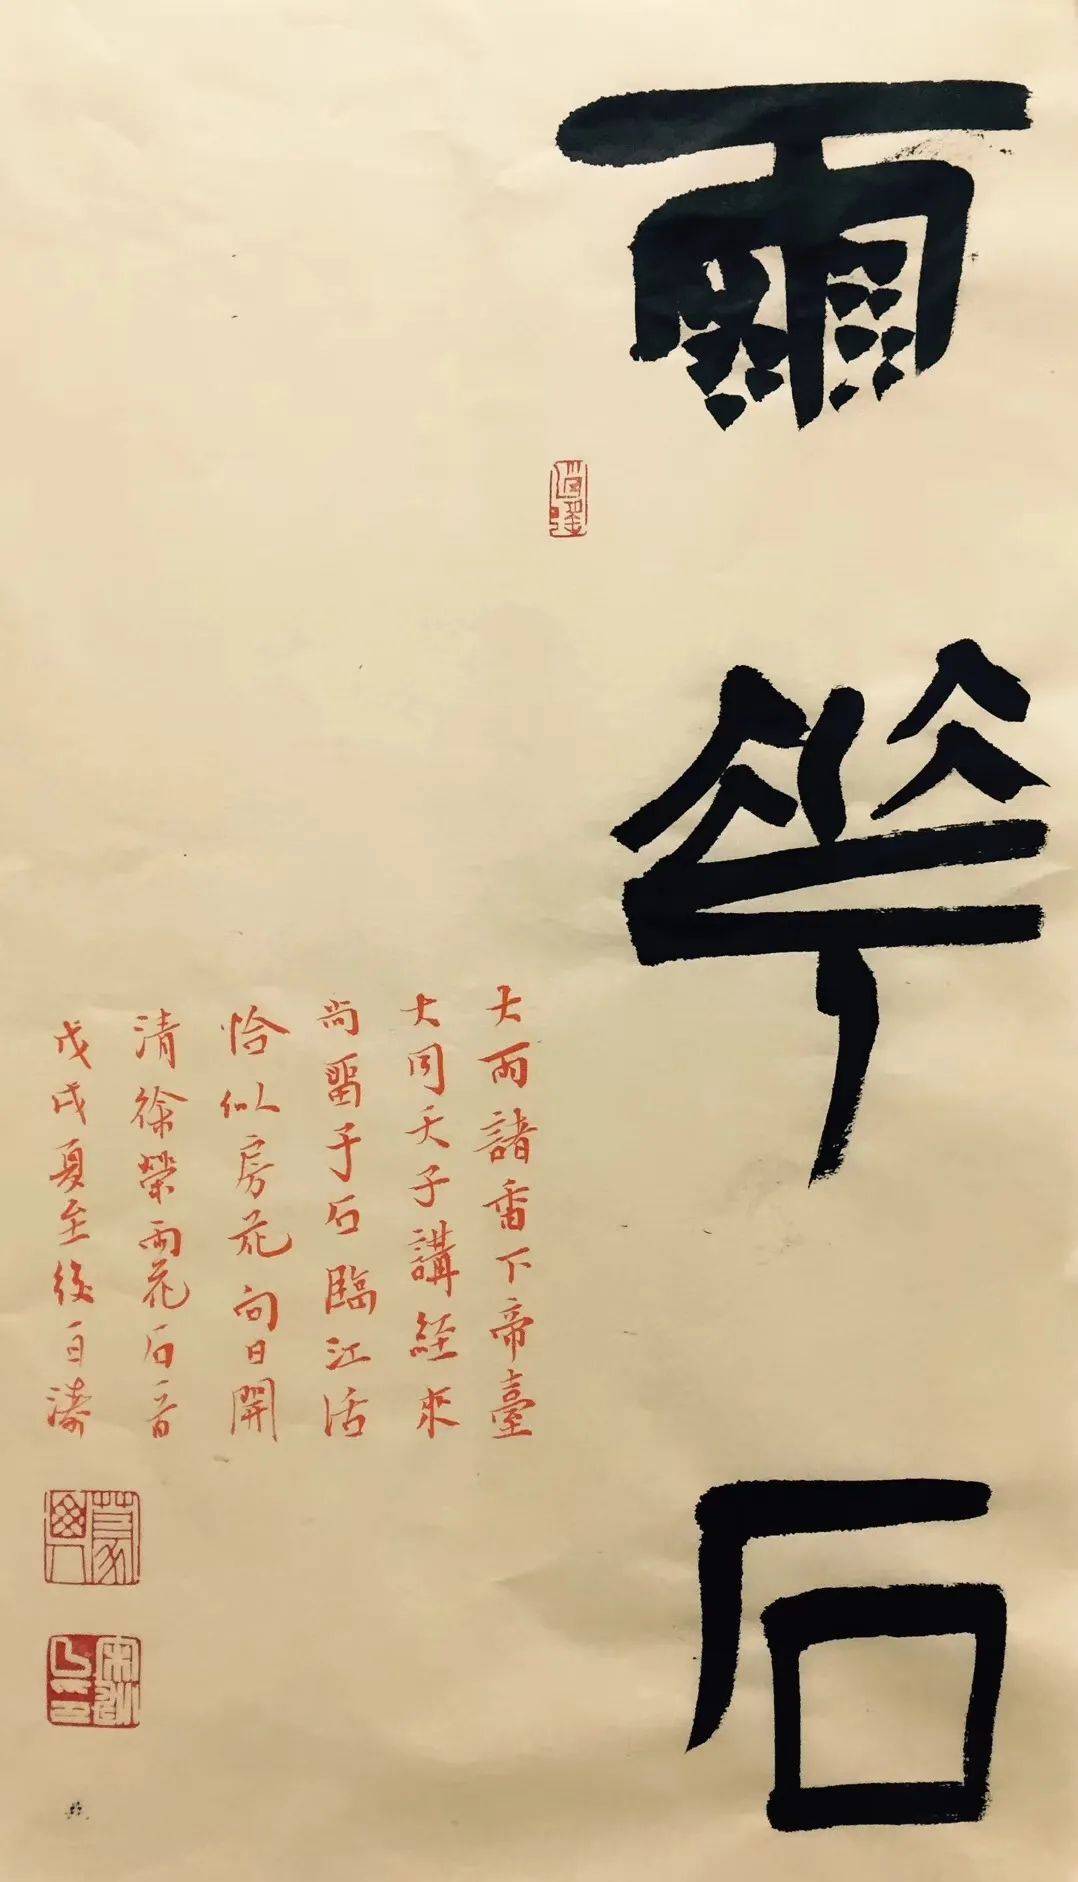 雨華石
大雨諸香下帝臺
大同天子講經來
尚留子石臨江活
恰似房花向日開
清徐榮雨花石音
戊戌夏至後白濤